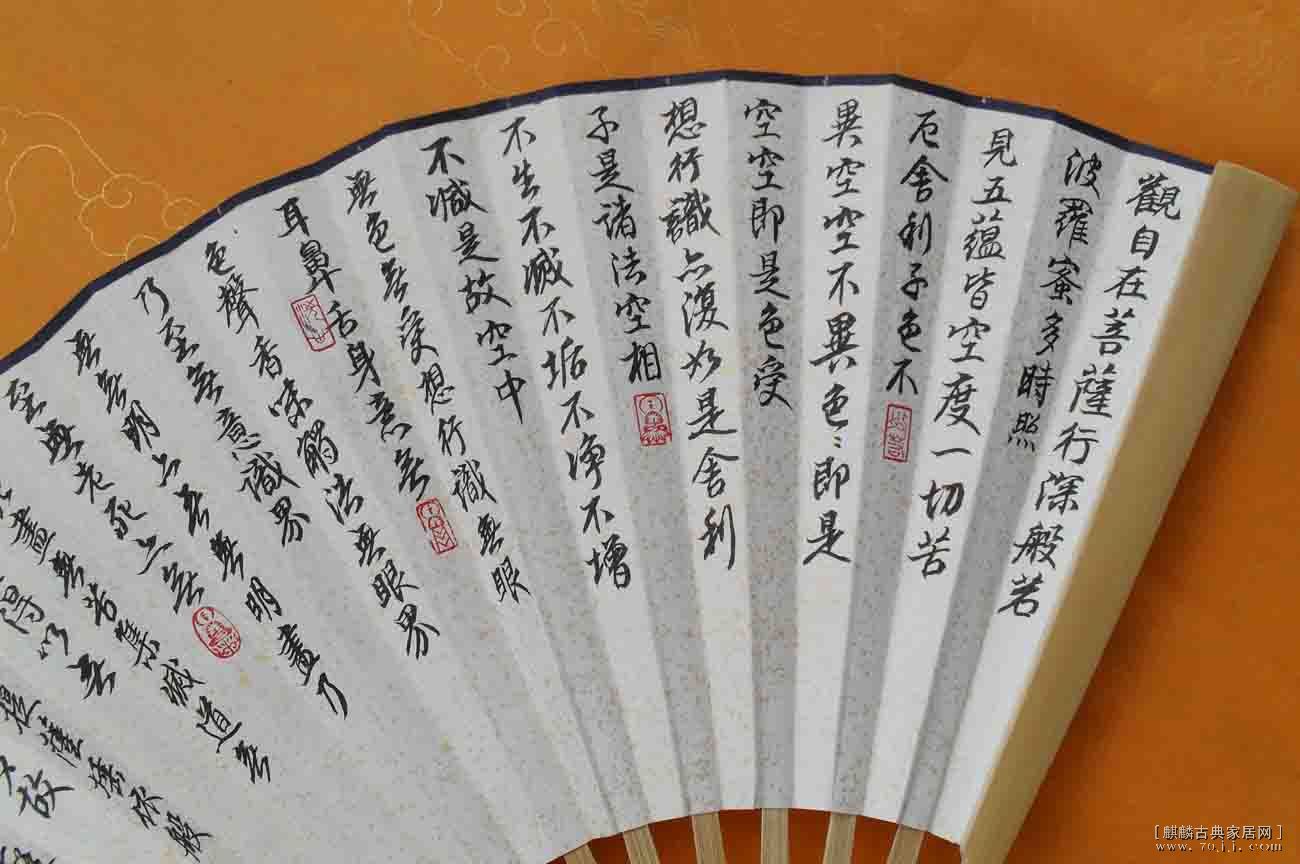 觀自在菩薩行深般若
波羅蜜多時照
見五蘊皆空度一切苦
厄舍利子色不
異空空不異色〻即是
空空即是色受
想行識亦復如是舍利
子是諸法空相
不生不滅不垢不淨不增
不減是故空中
無色無受想行識無眼
耳鼻舌身意無
色聲香味觸法無眼界
乃至無意識界
無無明亦無無明盡乃
至無老死亦無
盡無苦集滅道無
得以無
提薩埵依般
故
[麒麟古典家居网]
www.7qjj.com